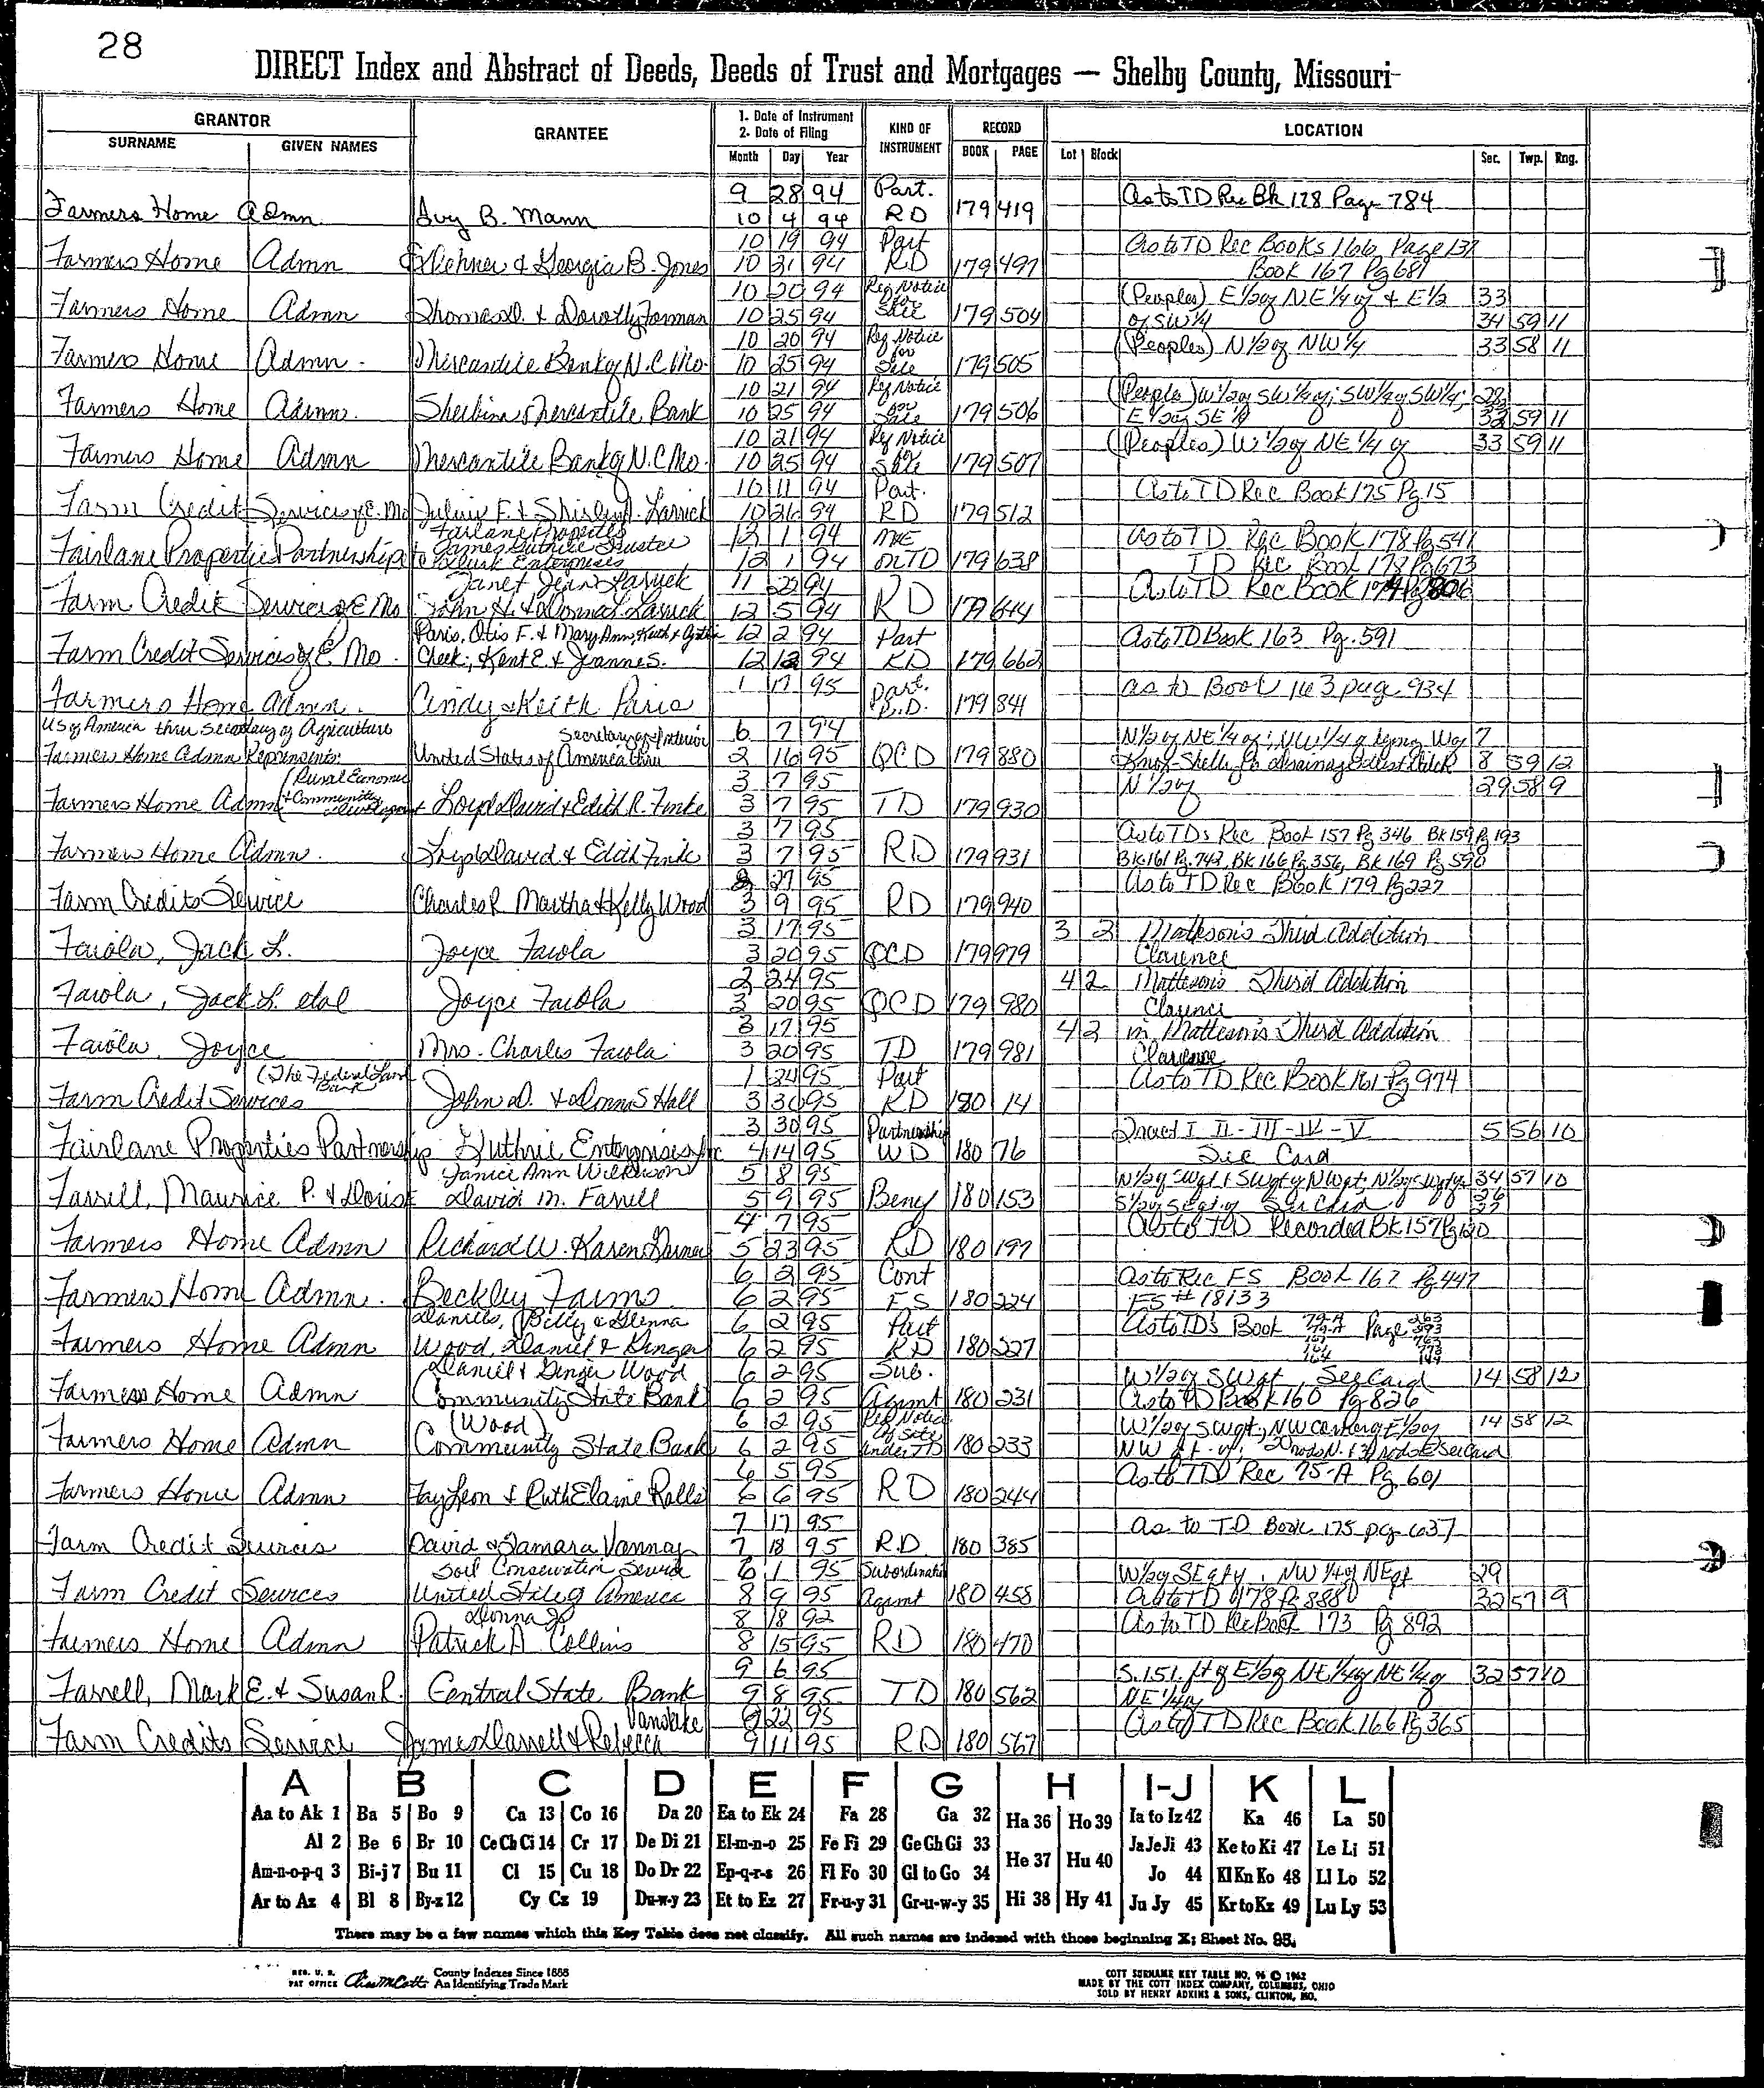 28
DIRECT Index and Abstract of Deeds, Deeds of Trust and Mortgages — Shelby County, Missouri
GRANTOR GRANTEE 1. Date of Instrument 2. Date of Filing KIND OF INSTRUMENT RECORD LOCATION
SURNAME GIVEN NAMES Month Day Year BOOK PAGE Lot Block Sec. Twp. Rng.
9 28 94 Part. As to TD Rec Bk 178 Page 784
Farmers Home Admn. B. Mann 10 4 94 RD 179 419
10 19 94 Part As to TD Rec Books 166 Page 137
Farmers Home Admn & Georgia B. Jones 10 31 94 RD 179 497 Book 167 Pg 681
10 20 94 Req Notice for (Peoples) E 1/2 of NE 1/4 of & E 1/2 33
Farmers Home Admn Thomas D. & Dorothy Forman 10 25 94 Sale 179 504 of SW 1/4 34 59 11
10 20 94 Req Notice for (Peoples) N 1/2 of NW 1/4 33 58 11
Farmers Home Admn. Mercantile Bank of N.C. Mo. 10 25 94 Sale 179 505
10 21 94 Req Notice (Peoples) W 1/2 of SW 1/4 of; SW 1/4 of SW 1/4; 28
Farmers Home Admn. Shelbina Mercantile Bank 10 25 94 for Sale 179 506 E 1/2 of SE 1/4 32 59 11
10 21 94 Req Notice (Peoples) W 1/2 of NE 1/4 of 33 59 11
Farmers Home Admn Mercantile Bank of N.C. Mo. 10 25 94 for Sale 179 507
10 11 94 Part. As to TD Rec Book 175 Pg 15
Farm Credit Services of E. Mo Julius F. & Shirley J. Larrick 10 26 94 RD 179 512
Fairlane Properties
James Guthrie Trustee 12 1 94 As to TD Rec Book 178 Pg 541
Fairlane Properties Partnership to Enterprises 12 1 94 TD 179 638 TD Rec Book 178 Pg 673
Janet Jean 11 22 94 As to TD Rec Book 174 Pg 806
Farm Credit Services of E Mo John H. & Donna 12 5 94 RD 179 644
Paris, Otis F. & Mary Ann, Keith & 12 2 94 Part As to TD Book 163 Pg. 591
Farm Credit Services of E. Mo. Cheek; Kent E. & Jeanne S. 12 12 94 RD 179 662
1 17 95 Part. as to Book 163 page 934
Farmers Home Admn. Cindy & Keith Paris R.D. 179 841
US of America thru Secretary of Agriculture Secretary of Interior 6 7 94 N 1/2 of NE 1/4 of; NW 1/4 of lying 7
Farmers Home Admn United States of America thru 2 16 95 QCD 179 880 Knox-Shelby Co Drainage Dist Ditch 8 59 12
(Rural Economic 3 7 95 N 1/2 of 29 58 9
Farmers Home Admn & Community Development Loyd David & Edith R. Finke 3 7 95 TD 179 930
3 7 95 As to TDs Rec Book 157 Pg 346 Bk 159 Pg 193
Farmers Home Admn. Loyd David & Edith Finke 3 7 95 RD 179 931 Bk 161 Pg. 743, Bk 166 Pg 356, Bk 169 Pg 590
2 27 95 As to TD Rec Book 179 Pg 227
Farm Credits Service Charles R Martha & Kelly Wood 3 9 95 RD 179 940
3 17 95 3 2 Matteson's Third Addition
Faiola, Jack L. Joyce Faiola 3 20 95 QCD 179 979 Clarence
2 24 95 4 2 Matteson's Third Addition
Faiola, Jack L. etal Joyce Faiola 3 20 95 QCD 179 980 Clarence
3 17 95 4 2 in Matteson's Third Addition
Faiola, Joyce Mrs. Charles Faiola 3 20 95 TD 179 981 Clarence
(The Federal Land Bank 1 24 95 Part As to TD Rec Book 161 Pg 974
Farm Credit Services John D. & Donna S Hall 3 30 95 RD 180 14
3 30 95 Partnership Tract I II - III - IV - V 5 56 10
Fairlane Properties Partnership Guthrie Enterprises Inc 4 14 95 WD 180 76 See Card
Janice Ann Wilkerson 5 8 95 34 57 10
Farrell, Maurice P. & Doris E David M. Farrell 5 9 95 Beny 180 153 S 1/2 of SE qt of See Card
4 7 95 As to TD Recorded Bk 157 Pg
Farmers Home Admn Richard W. Karen 5 23 95 RD 180 197
6 2 95 Cont As to Rec FS Book 167 Pg 447
Farmers Home Admn. Beckley Farms 6 2 95 FS 180 224 FS # 18133
Daniels, Billy & Glenna 6 2 95 Part As to TD's Book 79-A Page 263
Farmers Home Admn Wood, Daniel & Ginger 6 2 95 RD 180 227
Daniel & Ginger Wood 6 2 95 Sub. W 1/2 of SW qt See Card 14 58 12
Farmers Home Admn Community State Bank 6 2 95 Agmt 180 231 As to TD Book 160 Pg 826
(Wood) 6 2 95 Req Notice of Sale W 1/2 of SW qt; NW cor of E 1/2 of 14 58 12
Farmers Home Admn Community State Bank 6 2 95 under TD 180 233 NW qt of; See Card
6 5 95 As to TD Rec 75-A Pg 601
Farmers Home Admn Fay Leon & Ruth Elaine Ralls 6 6 95 RD 180 244
7 17 95 As to TD Book 175 pg 637
Farm Credit Services David & Tamara Vannoy 7 18 95 R.D 180 385
Soil Conservation Service 6 1 95 Subordination W 1/2 of SE qt of, NW 1/4 of NE qt 29
Farm Credit Services United States of America 8 9 95 Agmt 180 458 As to TD 178 Pg 888 32 57 9
Donna Jo 8 18 92 As to TD Rec Book 173 Pg 892
Farmers Home Admn Patrick A Collins 8 15 95 RD 180 470
9 6 95 S. 151 ft of E 1/2 of NE 1/4 of NE 1/4 of 32 57 10
Farrell, Mark E. & Susan R. Central State Bank 9 8 95 TD 180 562 NE 1/4 of
22 95 As to TD Rec Book 166 Pg 365
Farm Credits Service James Darrell & Rebecca 9 11 95 RD 180 567
A B C D E F G H I-J K L
Aa to Ak 1 Ba 5 Bo 9 Ca 13 Co 16 Da 20 Ea to Ek 24 Fa 28 Ga 32 Ha 36 Ho 39 Ia to Iz 42 Ka 46 La 50
Al 2 Be 6 Br 10 Ce Ch Ci 14 Cr 17 De Di 21 El-m-n-o 25 Fe Fi 29 Ge Gh Gi 33 He 37 Hu 40 Ja Je Ji 43 Ke to Ki 47 Le Li 51
Am-n-o-p-q 3 Bi-j 7 Bu 11 Cl 15 Cu 18 Do Dr 22 Ep-q-r-s 26 Fl Fo 30 Gl to Go 34 Jo 44 Kl Kn Ko 48 Ll Lo 52
Ar to Az 4 Bl 8 By-z 12 Cy Cz 19 Du-w-y 23 Et to Ez 27 Fr-u-y 31 Gr-u-w-y 35 Hi 38 Hy 41 Ju Jy 45 Kr to Kz 49 Lu Ly 53
There may be a few names which this Key Table does not classify. All such names are indexed with those beginning X; Sheet No. 95.
REG. U. S. PAT OFFICE County Indexes Since 1888 An Identifying Trade Mark
COTT SURNAME KEY TABLE NO. 96 © 1962
MADE BY THE COTT INDEX COMPANY, COLUMBUS, OHIO
SOLD BY HENRY ADKINS & SONS, CLINTON, MO.